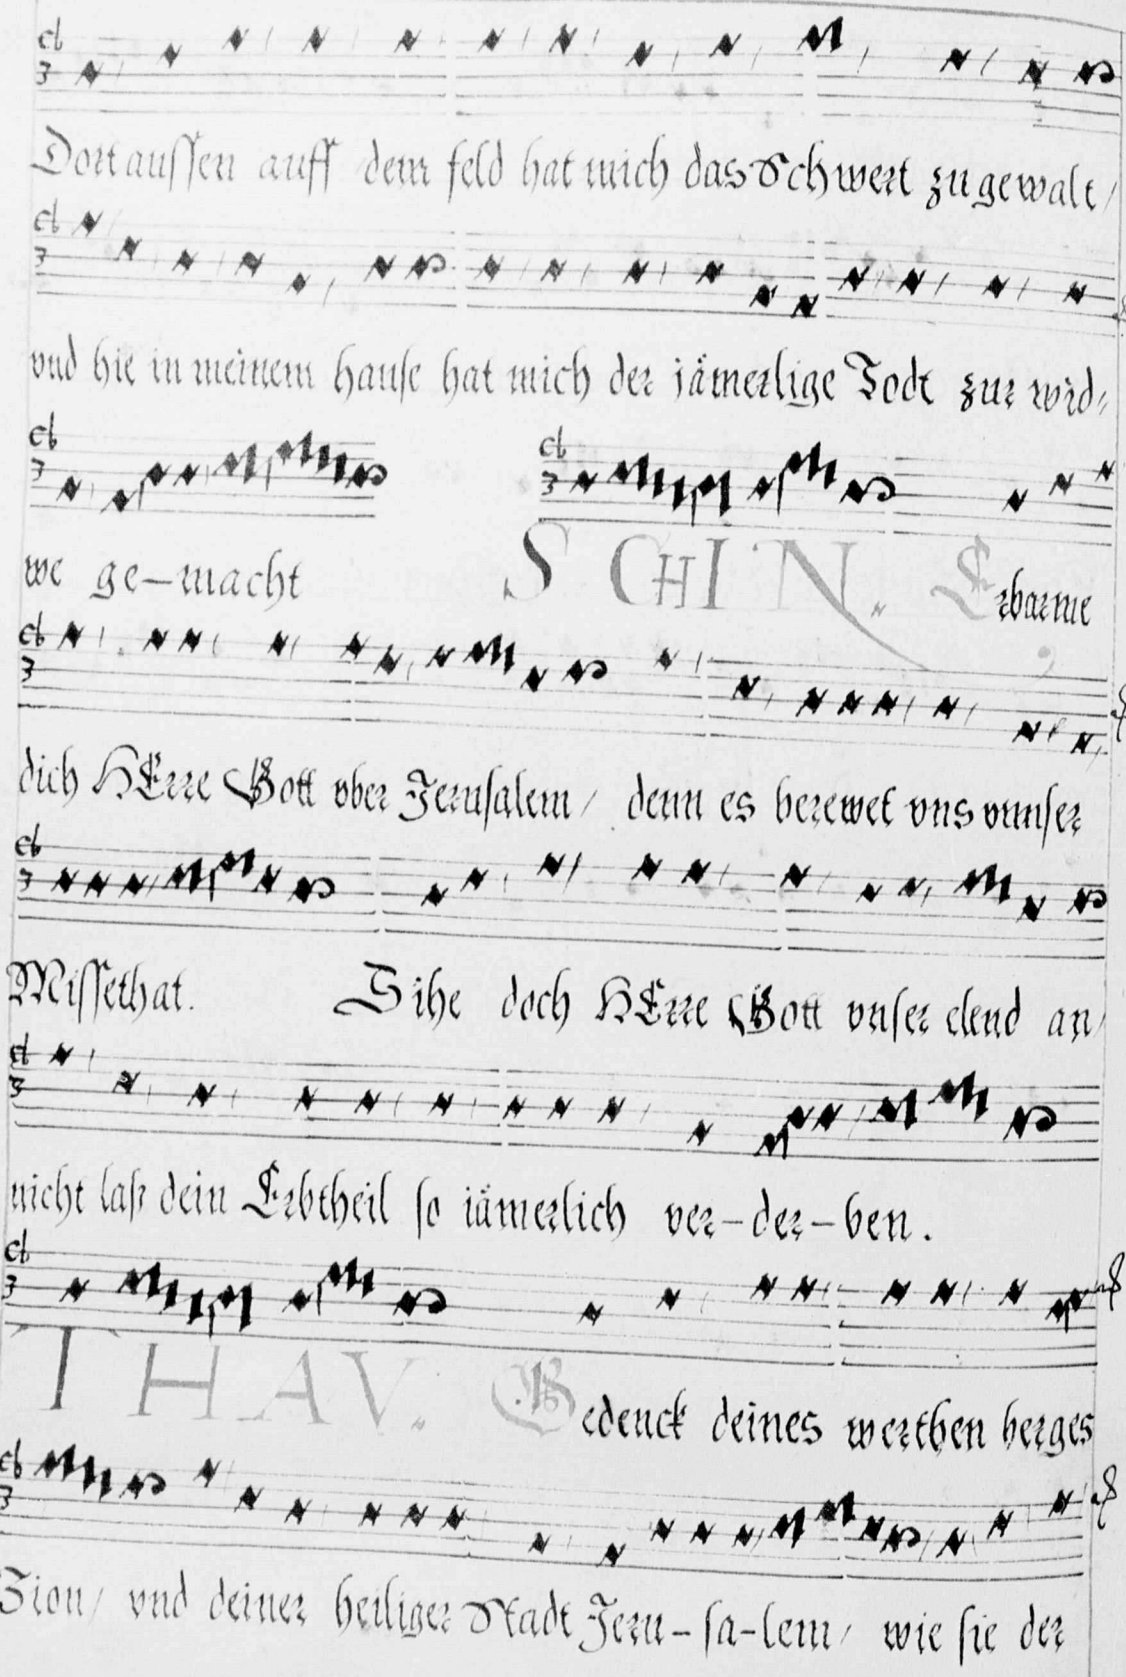 Dort aussen auff dem feld hat mich das Schwert zugewalt /
vnd hie in meinem hause hat mich der jämerlige Todt zur wid⸗
we ge-macht SCHIN. Erbarme
dich HErre Gott vber Jerusalem / denn es berewet vns vnnser
Missethat. Sihe doch HErre Gott vnser elend an /
nicht laß dein Erbtheil so jämerlich ver-der-ben.
THAV. Gedenck deines werthen berges
Zion / vnd deiner heiliger Stadt Jeru-sa-lem / wie sie der